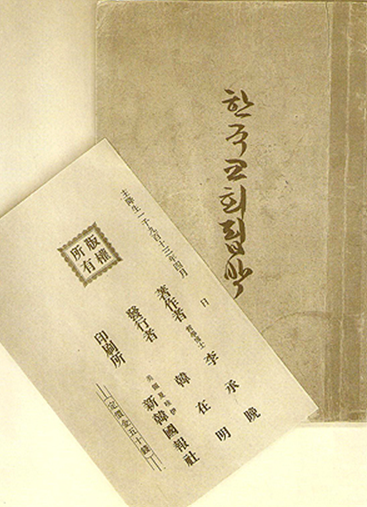 한국교회핍박
版權
所有
主降生一千九百十三年四月 日
著作者 哲學博士 李承晩
發行者 韓在明
印刷所 新韓國報社
定價金五十錢